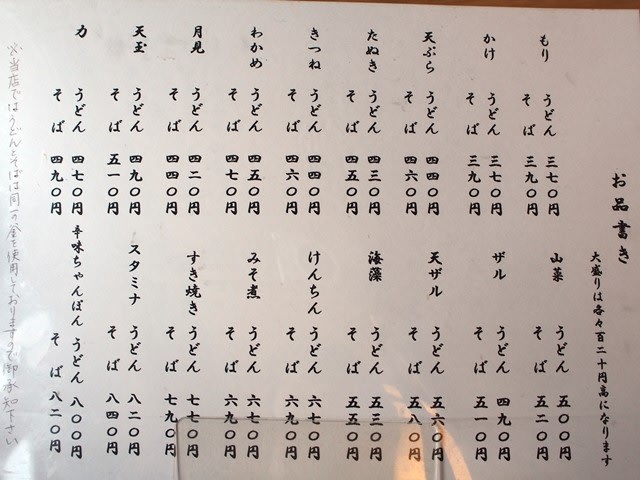 お品書き
大盛りは各々百二十円高になります
もり うどん 三七〇円
そば 三九〇円
かけ うどん 三七〇円
そば 三九〇円
天ぷら うどん 四四〇円
そば 四六〇円
たぬき うどん 四三〇円
そば 四五〇円
きつね うどん 四四〇円
そば 四六〇円
わかめ うどん 四五〇円
そば 四七〇円
月見 うどん 四二〇円
そば 四四〇円
天玉 うどん 四九〇円
そば 五一〇円
力 うどん 四七〇円
そば 四九〇円
山菜 うどん 五〇〇円
そば 五二〇円
ザル うどん 四九〇円
そば 五一〇円
天ザル うどん 五六〇円
そば 五八〇円
海藻 うどん 五三〇円
そば 五五〇円
けんちん うどん 六七〇円
そば 六九〇円
みそ煮 うどん 六七〇円
そば 六九〇円
すき焼き うどん 七七〇円
そば 七九〇円
スタミナ うどん 八二〇円
そば 八四〇円
辛味ちゃんぽん うどん 八〇〇円
そば 八二〇円
※当店ではうどんとそばは同一の釜を使用しておりますので御承知下さい